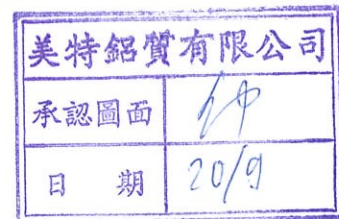 美特鋁質有限公司
承認圖面 仲
日 期 20/9